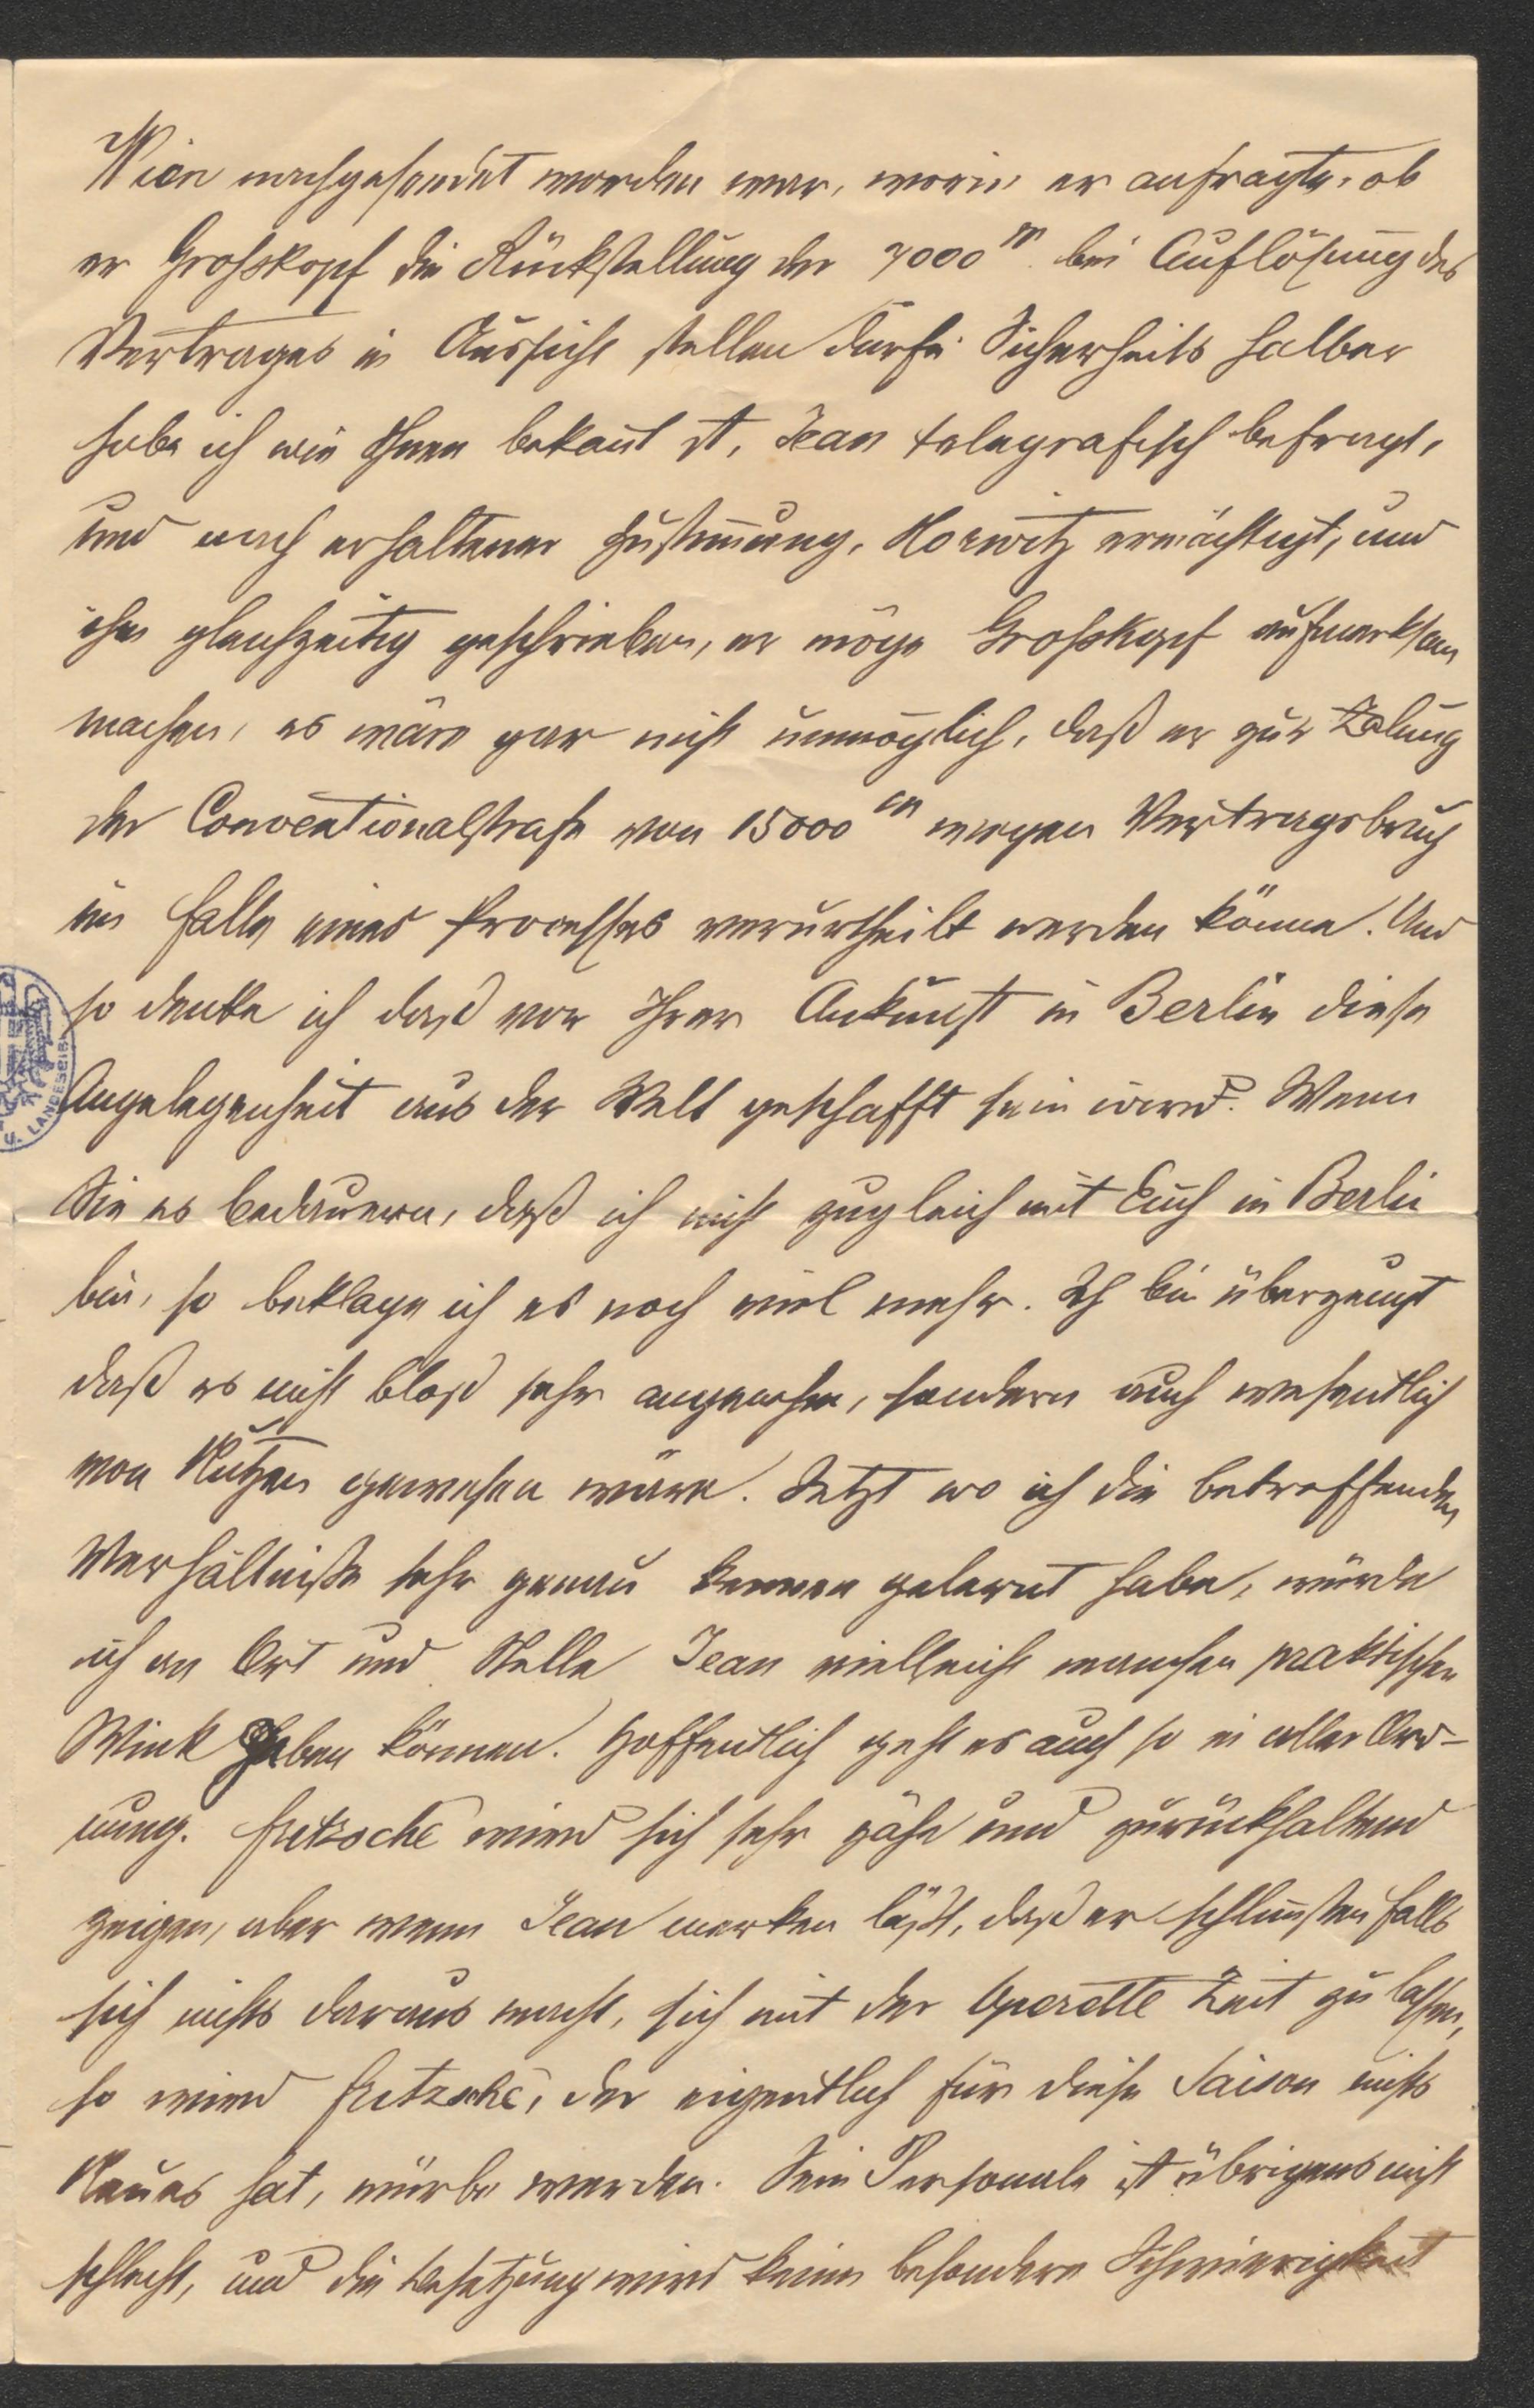 Wien nachgesendet worden war, worin er anfragte, ob
er Großkopf die Rückstellung der 7000 M. bei Auflösung des
Vertrages in Aussicht stellen dürfe. Sicherheits halber
habe ich wie Ihnen bekan̄t ist, Jean telegrafisch befragt,
und nach erhaltener Zustim̄ung, Horwitz ermächtigt, und
ihm gleichzeitig geschrieben, er möge Großkopf aufmerksam
machen, es wäre gar nicht unmöglich, daß er zur Zalung
der Conventionalstrafe von 15000 M wegen Vertragsbruch
im Falle eines Processes verurtheilt werden könne. Und
so denke ich daß vor Ihrer Ankunft in Berlin diese
Angelegenheit aus der Welt geschafft sein wird. Wenn
Sie es bedauern, daß ich nicht zugleich mit Euch in Berlin
bin, so beklage ich es noch viel mehr. Ich bin überzeugt
daß es nicht bloß sehr angenehm, sondern auch wesentlich
von Nutzen gewesen wäre. Jetzt wo ich die betreffenden
Verhältniße sehr genau kennen gelernt habe, würde
ich an Ort und Stelle Jean vielleicht manchen praktischen
Wink geben können. Hoffentlich geht es auch so in aller Ord-
nung. Fritzsche wird sich sehr zähe und zurückhaltend
zeigen, aber wenn Jean merken läßt, daß er schlim̄sten Falls
sich nichts daraus macht, sich mit der Operette Zeit zu lassen,
so wird Fritzsche, der eigentlich für diese Saison nichts
Neues hat, mürbe werden. Sein Personale ist übrigens nicht
schlecht, und die Besetzung wird keine besondere Schwierigkeit
U. LANDESBIB.